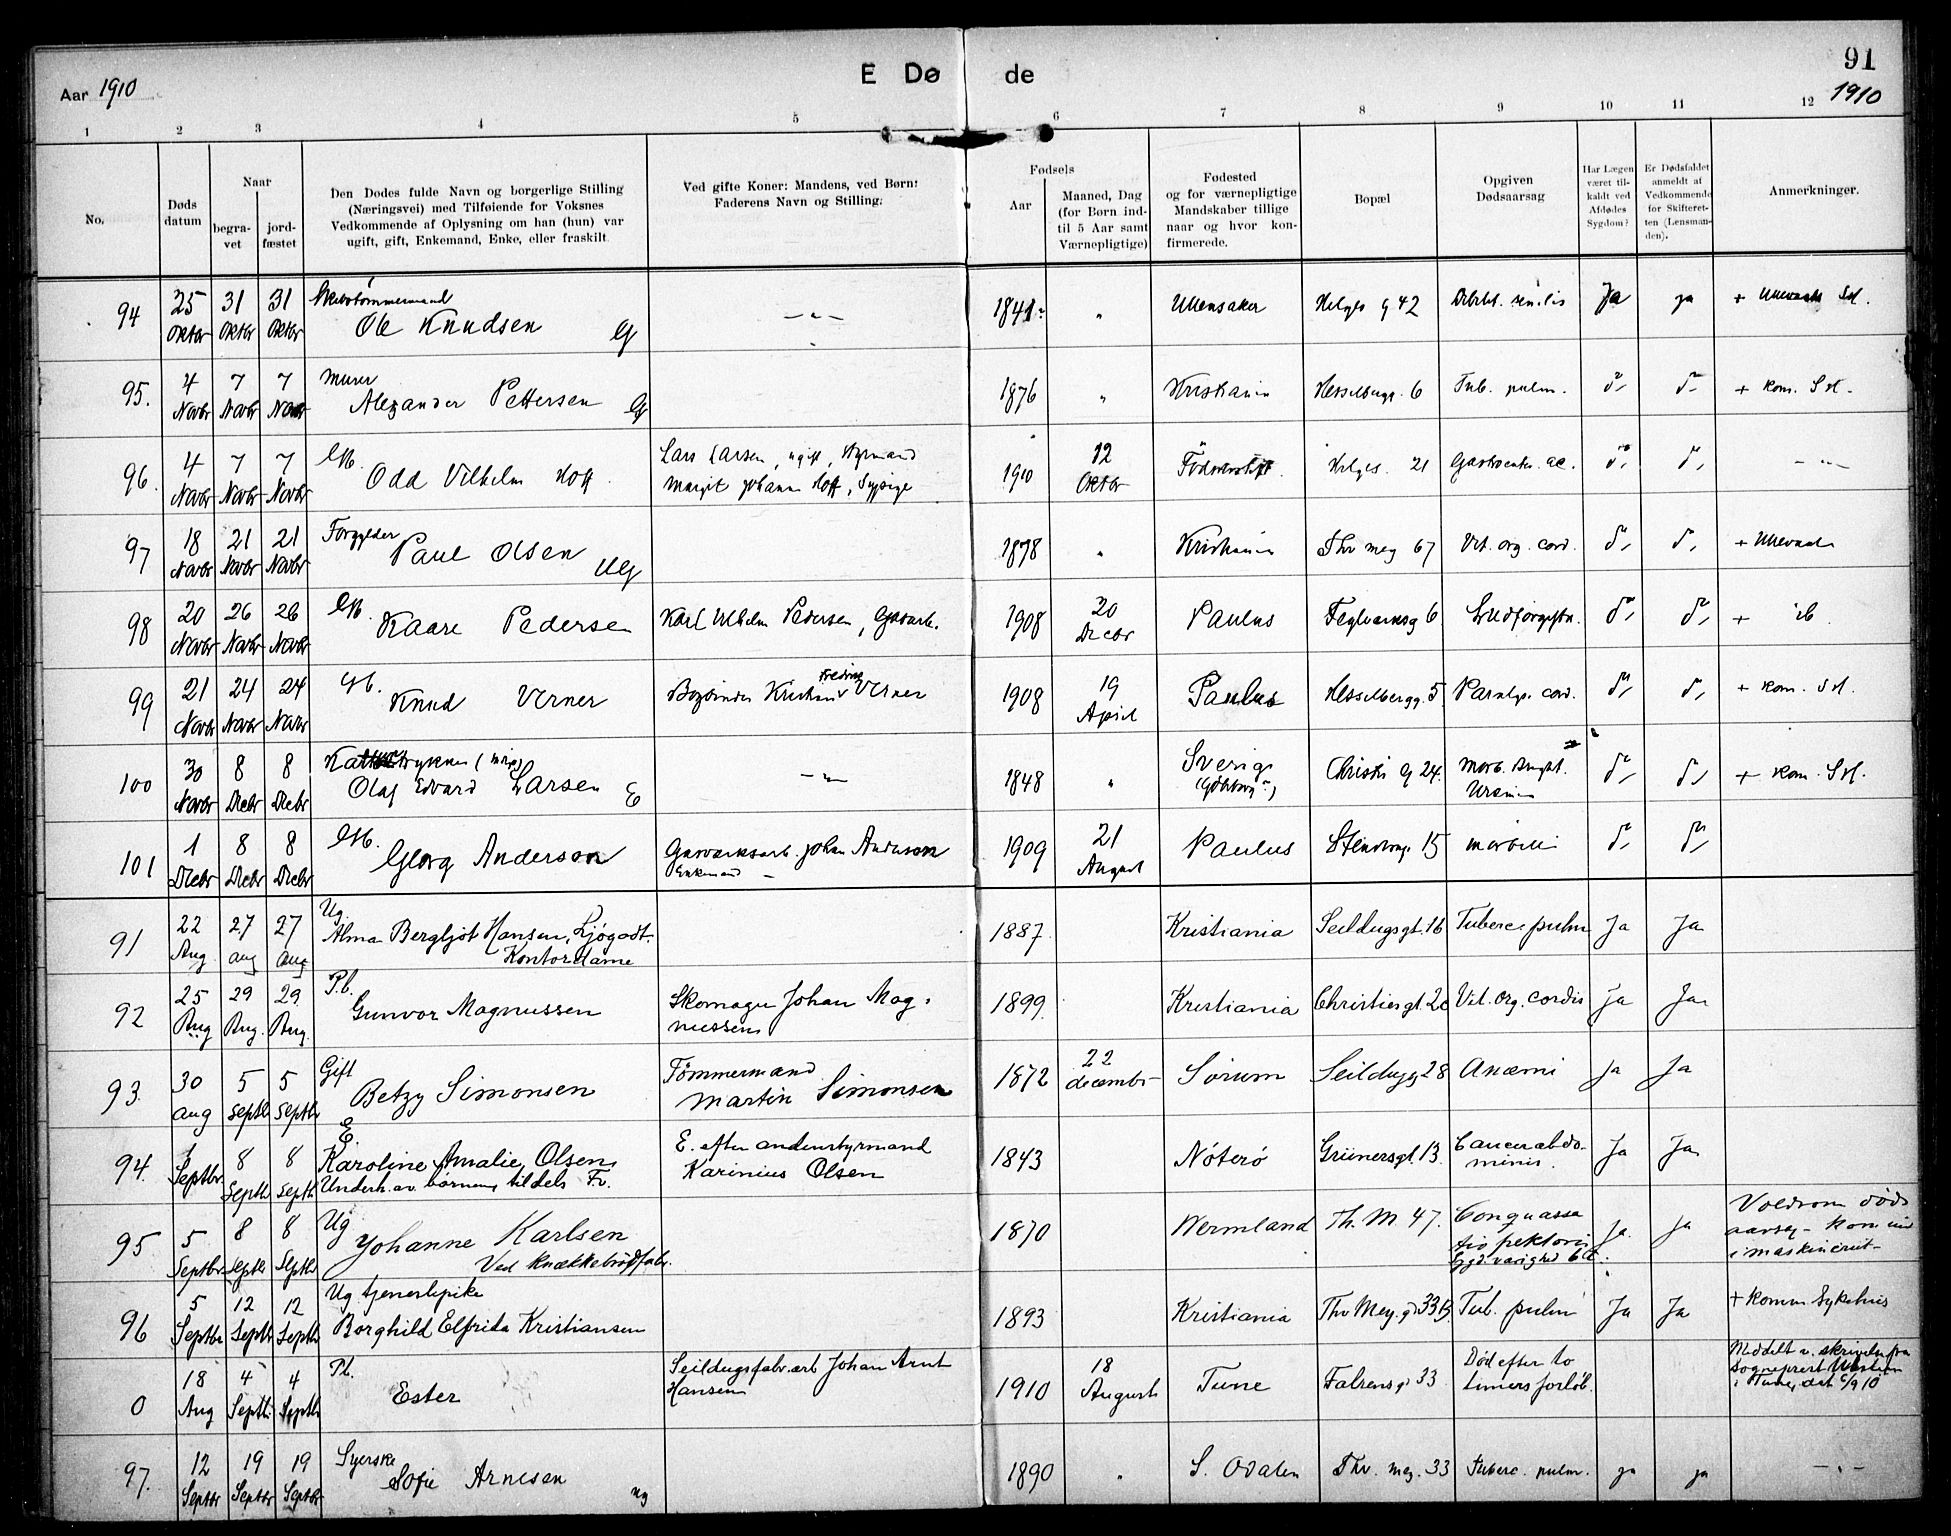 Aar 1910
E Dø de
91
1910
1 2 3 4 5 6 7 8 9 10 11 12
No.
Døds datum
Naar
begra- vet
jord- fæstet
Den Dødes fulde Navn og borgerlige Stilling
(Næringsvei) med Tilføiende for Voksnes
Vedkommende af Oplysning om han (hun) var
ugift, gift, Enkemand, Enke, eller fraskilt.
Ved gifte Koner: Mandens, ved Børn:
Faderens Navn og Stilling.
Fødsels
Aar
Maaned, Dag
(for Børn ind-
til 5 Aar samt
Værnepligtige)
Fødested
og for værnepligtige
Mandskaber tillige
naar og hvor kon-
firmerede.
Bopæl
Opgiven
Dødsaarsag
Har Lægen
været til-
kaldt ved
Afdødes
Sygdom?
Er Dødsfaldet
anmeldt af
Vedkommende
for Skifteret-
ten (Lensman-
den).
Anmerkninger.
94 25 31 31 Skibstømmermand
Oktbr Oktbr Oktbr Ole Knudsen G — " — 1841 " Ullensaker Helges g 42 Debil. senilis Ja ja + Ullevaal
95. 4 7 7 Murer
Novbr Novbr Novbr Alexander Pettersen G 1876 " Kristiania Hesselbergg. 6 Tub. pulm. + kom.
96. 4 7 7 Lars Larsen, ugift, Styrmand 12
Novbr Novbr Novbr Odd Vilhelm Hoff Margit Johanne Hoff, Sypige 1910 Oktbr Helges. 21 Gastroenter. ac. — " —
97 18 21 21 Forgylder
Novbr Novbr Novbr Paul Olsen Ug 1878 " Kristiania Thv mey 67 Vit. org. cord. + Ullevaal
98 20 26 26 20
Novbr Novbr Novbr Kaare Pedersen Karl Vilhelm Pedersen, Gasarb. 1908 Decbr Paulus Teglverksg 6 +
99 21 24 24 19
Novbr Novbr Novbr Knud Verner Kristian Fredrik Verner 1908 April Paulus Hesselbergg. 5 Paralys. cord. + kom.
100 30 8 8
Novbr Decbr Decbr Olaf Edvard Larsen E — " — 1848 " Sverige
(Gøteborg) Christi g 24. Morb. Bright.
Uræmi + kom.
101 1 8 8 21
Decbr Decbr Decbr Georg Anderson Gasværksarb. Johan Anderson
Enkemand — 1909 August Paulus 15 morbilli
91 22 27 27 Ug.
Aug aug aug Alma Bergljot Hansen, Ljógodt.
Kontordame 1887 Kristiania Seildugsgt. 16 Tuberc. pulm Ja Ja
92 25 29 29 P.b.
Aug Aug. Aug. Gunvor Magnussen Skomager Johan Mag-
nussen 1899. Kristiania Christiesgt. 20 Vit. org. cordis Ja Ja
93. 30 5 5 Gift
aug Septb Septb Betzy Simonsen Tømmermand
Martin Simonsen 1872 22
decembr Sørum Seildugsg 28 Anæmi Ja Ja
94. 1 8 8 E.
Septbr Septb Septb Karoline Amalie Olsen,
Underh. av børnene, tildels Fv. E. efter andenstyrmand
Karinius Olsen 1843 Nøterø Grünersgt. 13. Cancer abdo-
minis. Ja Ja
95 5 8 8 Ug
Septbr Septb Septb Johanne Karlsen
Ved knækkebrødfabr. 1870 Wermland Th. M 47. Conquassa
tio pektoris
Sygd. varighed 6 t. Ja. Ja Voldsom døds
aarsag - kom ind
i maskineriet -
96 5 12 12 Ug. tjenestepike
Septbr Septb Septb Borghild Elfrida Kristiansen 1893 Kristiania Thv Mey. g 33 B. Tub. pulm Ja Ja + komm Sykehus
0 18 4 4 P.b.
Aug Septb Septb Ester Seildugsfabr.arb Johan Arnt
Hansen 1910 18
August Tune Falsensg 33 Død efter to
timers forløb. Meddelt v. skrivelse fra
Sogneprest
i Tune, dat 6/9 10
97. 12 19 19 Syerske
Septbr Septbr Septbr Sofie Arnesen ug 1890 " S. Odalen Thv. mey. 33 Tuberc. pulm. ja ja — " —